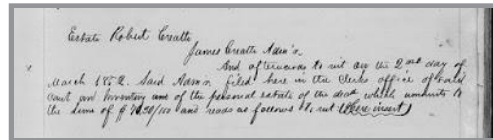 Estate Robert Creath
James Creath Adm'r.
And afterwards to wit on the 2nd day of
March 1852. Said Adm'r filed here in the Clerks office of said
Court an Inventory &c of the personal estate of the decd which amounts to
the sum of $ 50/100 and reads as follows to wit (Here insert)